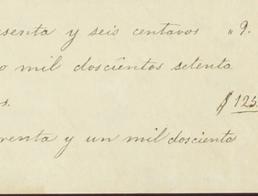 senta y seis centavos " 9.
o mil doscientos setenta
s. $ 125
renta y un mil dosciento